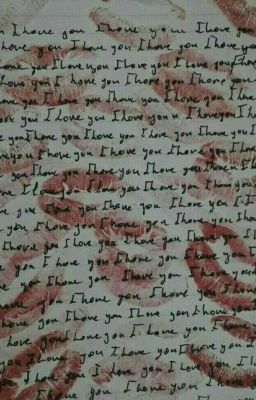 I love you I love you I love you
love you I love you I love you I love you
I love you I love you I love you I love you
I love you I love you I love you I love you
I love you I love you I love you I love you
you I love you I love you I love you I
you I love you I love you I love you I
love you I love you I love you I love you
I love you I love you I love you I
I love you I love you I love you I love you
I love you I love you I love you I love you
love you I love you I love you I
love you I love you I love you I
I love you I love you I love you I
you I love you I love you I love you
you I love you I love you I love you
I love you I love you I love you
you I love you I love you I love you
I love you I love you I love you
you I love you I love you I love you
I love you I love you I love you
you I love you I love you I love you
I love you I love you I love you
I love you I love you I love you
I love you I love you I love you